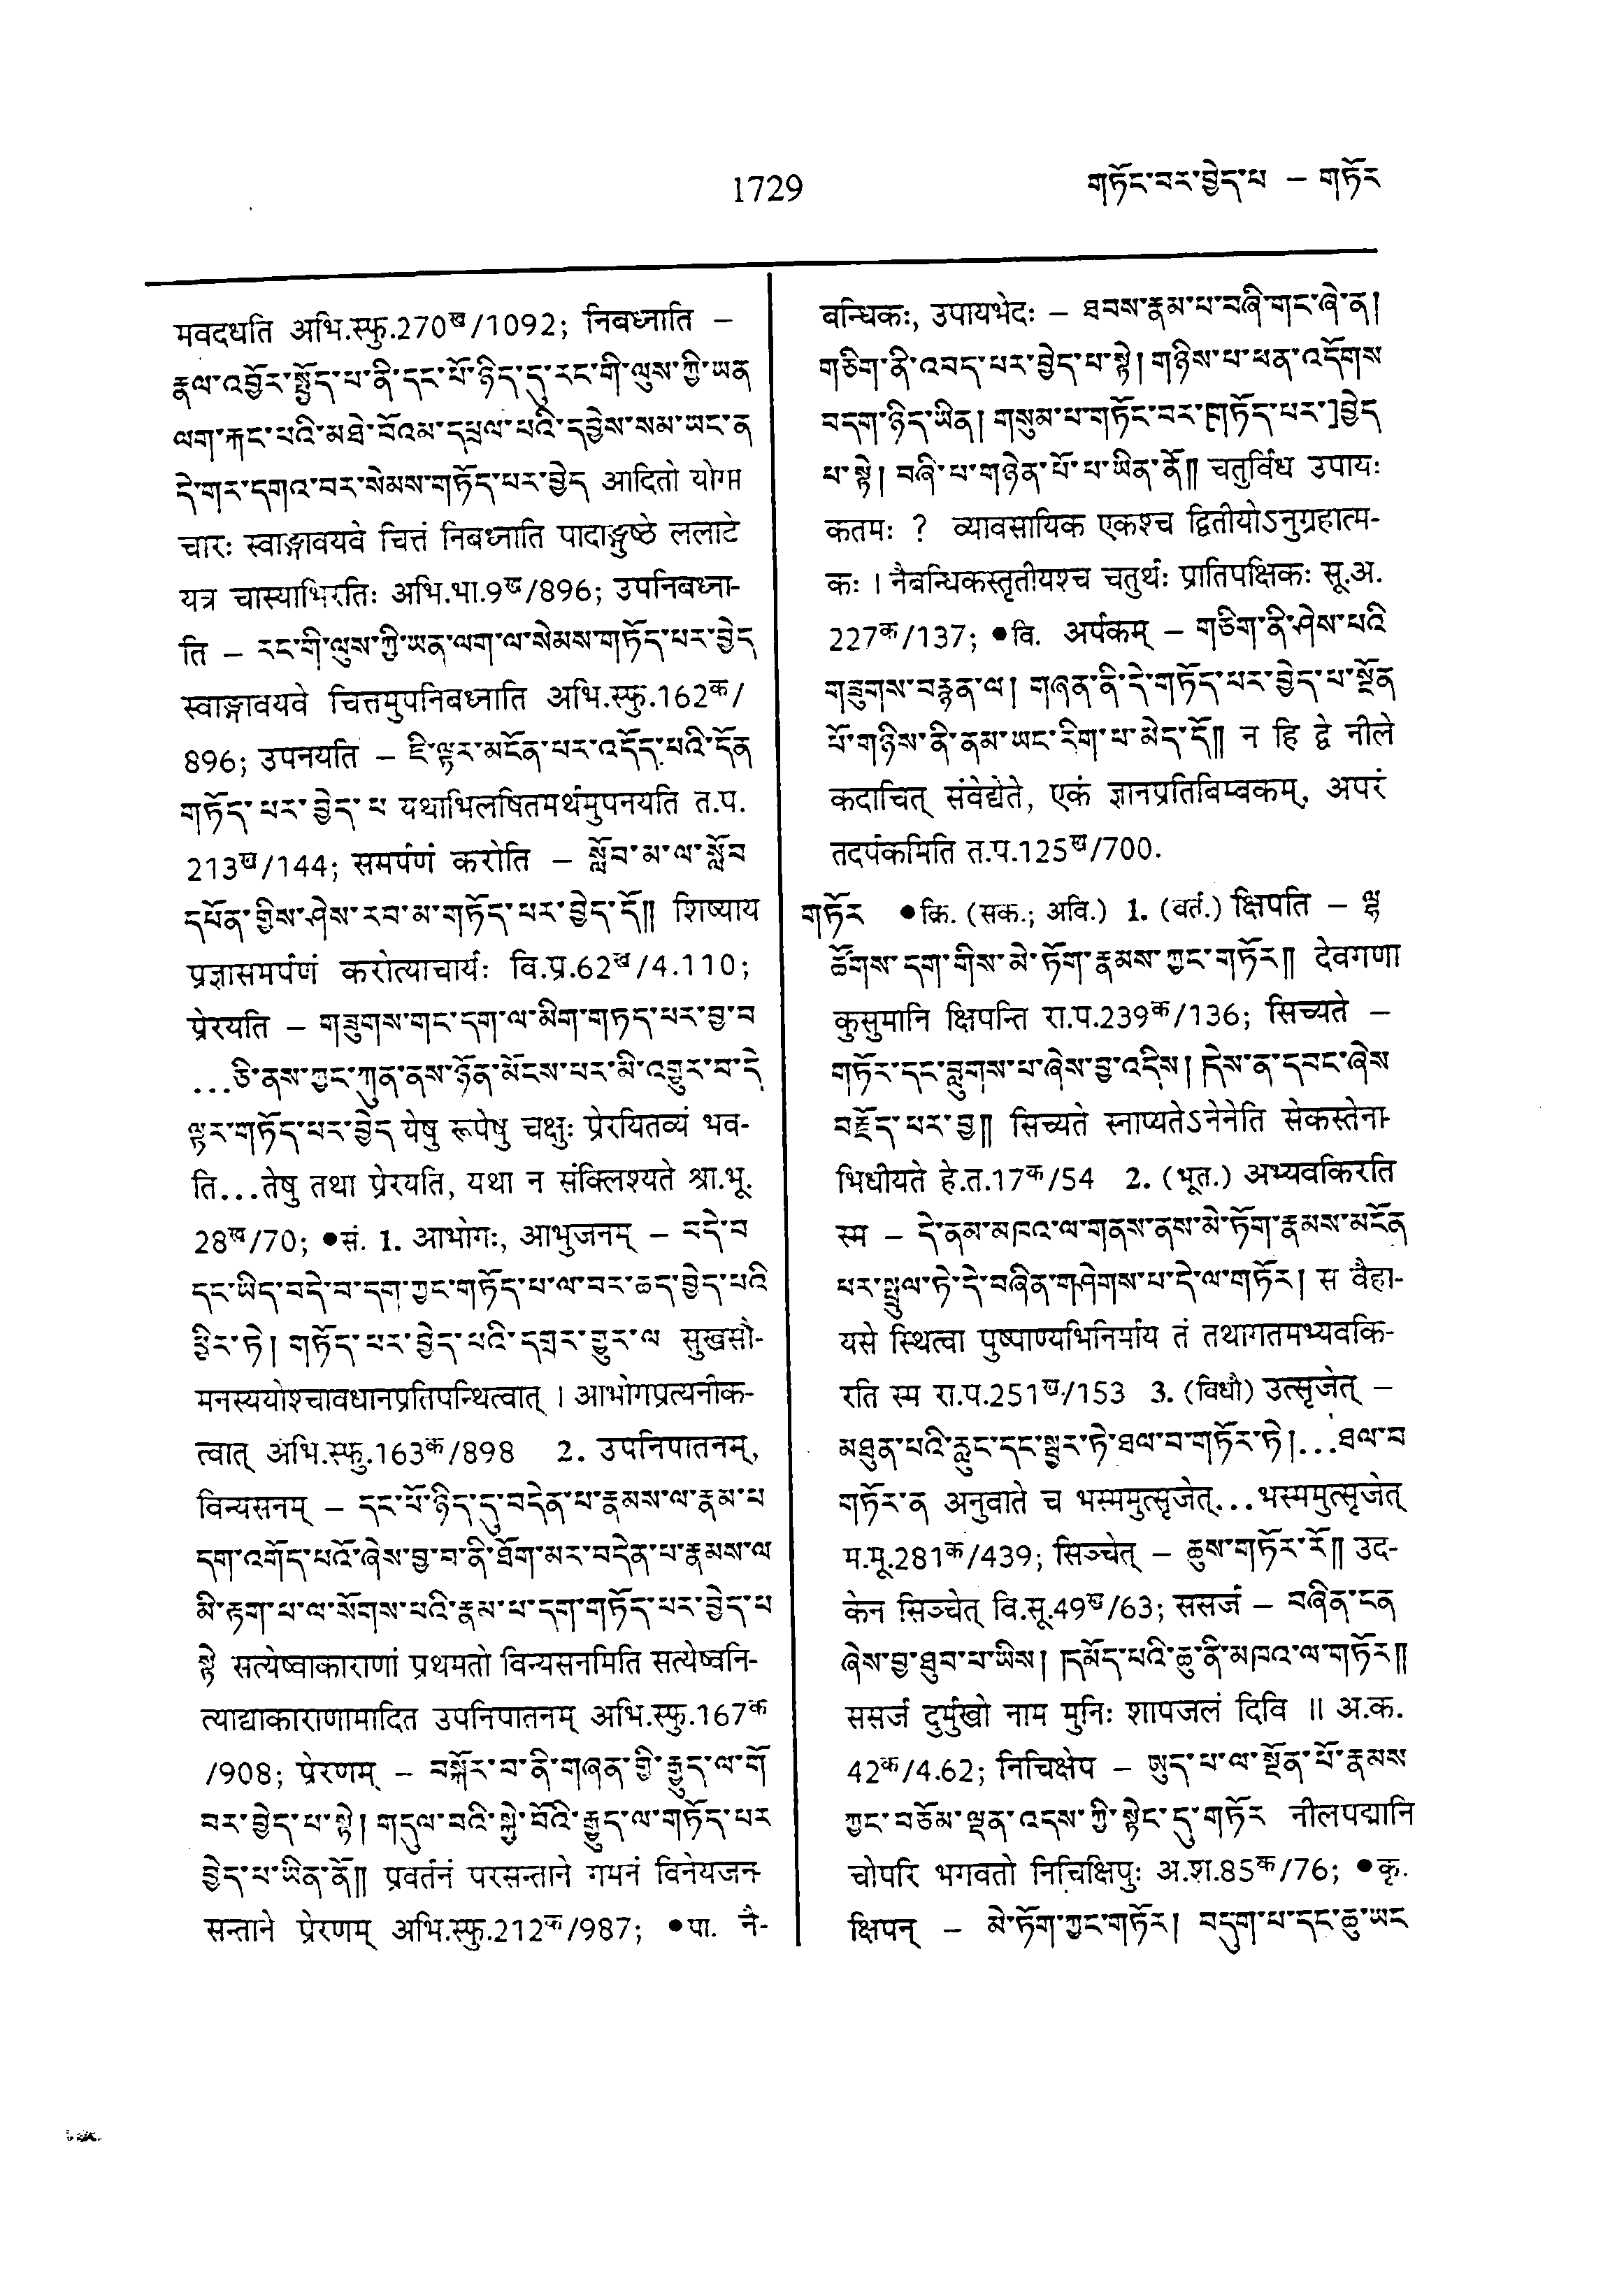 1729
གཏོང་བར་བྱེད་པ – གཏོར
मवदधति अभि.स्फु.270ख/1092; निबध्नाति –
རྣལ་འབྱོར་སྤྱོད་པ་ནི་དང་པོ་ཉིད་དུ་རང་གི་ལུས་ཀྱི་ཡན
ལག་རྐང་པའི་མཐེ་བོའམ་དཔྲལ་པའི་དབྱེས་སམ་ཡང་ན
དེ་གར་དགའ་བར་སེམས་གཏོད་པར་བྱེད आदितो योगा
चारः स्वाङ्गावयवे चित्तं निबध्नाति पादाङ्गुष्ठे ललाटे
यत्र चास्याभिरतिः अभि.भा.9ख/896; उपनिबध्ना-
ति – རང་གི་ལུས་ཀྱི་ཡན་ལག་ལ་སེམས་གཏོད་པར་བྱེད
स्वाङ्गावयवे चित्तमुपनिबध्नाति अभि.स्फु.162क/
896; उपनयति – ཇི་ལྟར་མངོན་པར་འདོད་པའི་དོན
གཏོད་པར་བྱེད་པ यथाभिलषितमर्थमुपनयति त.प.
213ख/144; समर्पणं करोति – སློབ་མ་ལ་སློབ
དཔོན་གྱིས་ཤེས་རབ་མ་གཏོད་པར་བྱེད་དོ༎ शिष्याय
प्रज्ञासमर्पणं करोत्याचार्यः वि.प्र.62ख/4.110;
प्रेरयति – གཟུགས་གང་དག་ལ་མིག་གཏད་པར་བྱ་བ
...ཅི་ནས་ཀྱང་ཀུན་ནས་ཉོན་མོངས་པར་མི་འགྱུར་བ་དེ
ལྟར་གཏོད་པར་བྱེད येषु रूपेषु चक्षुः प्रेरयितव्यं भव-
ति...तेषु तथा प्रेरयति, यथा न संक्लिश्यते श्रा.भू.
28ख/70; ●सं. 1. आभोगः, आभुजनम् – བདེ་བ
དང་ཡིད་བདེ་བ་དག་ཀྱང་གཏོད་པ་ལ་བར་ཆད་བྱེད་པའི
ཕྱིར་ཏེ། གཏོད་པར་བྱེད་པའི་དགྲར་གྱུར་ལ सुखसौ-
मनस्ययोश्चावधानप्रतिपन्थित्वात् । आभोगप्रत्यनीक-
त्वात् अभि.स्फु.163क/898 2. उपनिपातनम्,
विन्यसनम् – དང་པོ་ཉིད་དུ་བདེན་པ་རྣམས་ལ་རྣམ་པ
དག་འགོད་པའོ་ཞེས་བྱ་བ་ནི་ཐོག་མར་བདེན་པ་རྣམས་ལ
མི་རྟག་པ་ལ་སོགས་པའི་རྣམ་པ་དག་གཏོད་པར་བྱེད་པ
སྟེ सत्येष्वाकाराणां प्रथमतो विन्यसनमिति सत्येष्वनि-
त्याद्याकाराणामादित उपनिपातनम् अभि.स्फु.167क
/908; प्रेरणम् – བསྐོར་བ་ནི་གཞན་གྱི་རྒྱུད་ལ་གོ
བར་བྱེད་པ་སྟེ། གདུལ་བའི་སྐྱེ་བོའི་རྒྱུད་ལ་གཏོད་པར
བྱེད་པ་ཡིན་ནོ༎ प्रवर्तनं परसन्ताने गमनं विनेयजन-
सन्ताने प्रेरणम् अभि.स्फु.212क/987; ●पा. नै-
बन्धिकः, उपायभेदः – ཐབས་རྣམ་པ་བཞི་གང་ཞེ་ན།
གཅིག་ནི་འབད་པར་བྱེད་པ་སྟེ། གཉིས་པ་ཕན་འདོགས
བདག་ཉིད་ཡིན། གསུམ་པ་གཏོང་བར་[གཏོད་པར་]བྱེད
པ་སྟེ། བཞི་པ་གཉེན་པོ་པ་ཡིན་ནོ༎ चतुर्विध उपायः
कतमः ? व्यावसायिक एकश्च द्वितीयोऽनुग्रहात्म-
कः । नैबन्धिकस्तृतीयश्च चतुर्थः प्रातिपक्षिकः सू.अ.
227क/137; ●वि. अर्पकम् – གཅིག་ནི་ཤེས་པའི
གཟུགས་བརྙན་ལ། གཞན་ནི་དེ་གཏོད་པར་བྱེད་པ་སྔོན
པོ་གཉིས་ནི་ནམ་ཡང་རིག་པ་མེད་དོ༎ न हि द्वे नीले
कदाचित् संवेद्येते, एकं ज्ञानप्रतिबिम्वकम्, अपरं
तदर्पकमिति त.प.125ख/700.
གཏོར ●क्रि. (सक.; अवि.) 1. (वर्त.) क्षिपति – ལྷ
ཚོགས་དག་གིས་མེ་ཏོག་རྣམས་ཀྱང་གཏོར༎ देवगणा
कुसुमानि क्षिपन्ति रा.प.239क/136; सिच्यते –
གཏོར་དང་བླུགས་པ་ཞེས་བྱ་འདིས། །དེས་ན་དབང་ཞེས
བརྗོད་པར་བྱ༎ सिच्यते स्नाप्यतेऽनेनेति सेकस्तेना-
भिधीयते हे.त.17क/54 2. (भूत.) अभ्यवकिरति
स्म – དེ་ནམ་མཁའ་ལ་གནས་ནས་མེ་ཏོག་རྣམས་མངོན
པར་སྤྲུལ་ཏེ་དེ་བཞིན་གཤེགས་པ་དེ་ལ་གཏོར། स वैहा-
यसे स्थित्वा पुष्पाण्यभिनिर्माय तं तथागतमभ्यवकि-
रति स्म रा.प.251ख/153 3. (विधौ) उत्सृजेत् –
མཐུན་པའི་རླུང་དང་སྦྱར་ཏེ་ཐལ་བ་གཏོར་ཏེ།...ཐལ་བ
གཏོར་ན अनुवाते च भस्ममुत्सृजेत्...भस्ममुत्सृजेत्
म.मू.281क/439; सिञ्चेत् – ཆུས་གཏོར་རོ༎ उद-
केन सिञ्चेत् वि.सू.49ख/63; ससर्ज – བཞིན་ངན
ཞེས་བྱ་ཐུབ་པ་ཡིས། །དམོད་པའི་ཆུ་ནི་མཁའ་ལ་གཏོར༎
ससर्ज दुर्मुखो नाम मुनिः शापजलं दिवि ॥ अ.क.
42क/4.62; निचिक्षेप – ཨུད་པ་ལ་སྔོན་པོ་རྣམས
ཀྱང་བཅོམ་ལྡན་འདས་ཀྱི་སྟེང་དུ་གཏོར नीलपद्मानि
चोपरि भगवतो निचिक्षिपुः अ.श.85क/76; ●कृ.
क्षिपन् – མེ་ཏོག་ཀྱང་གཏོར། བདུག་པ་དང་ཆུ་ཡང